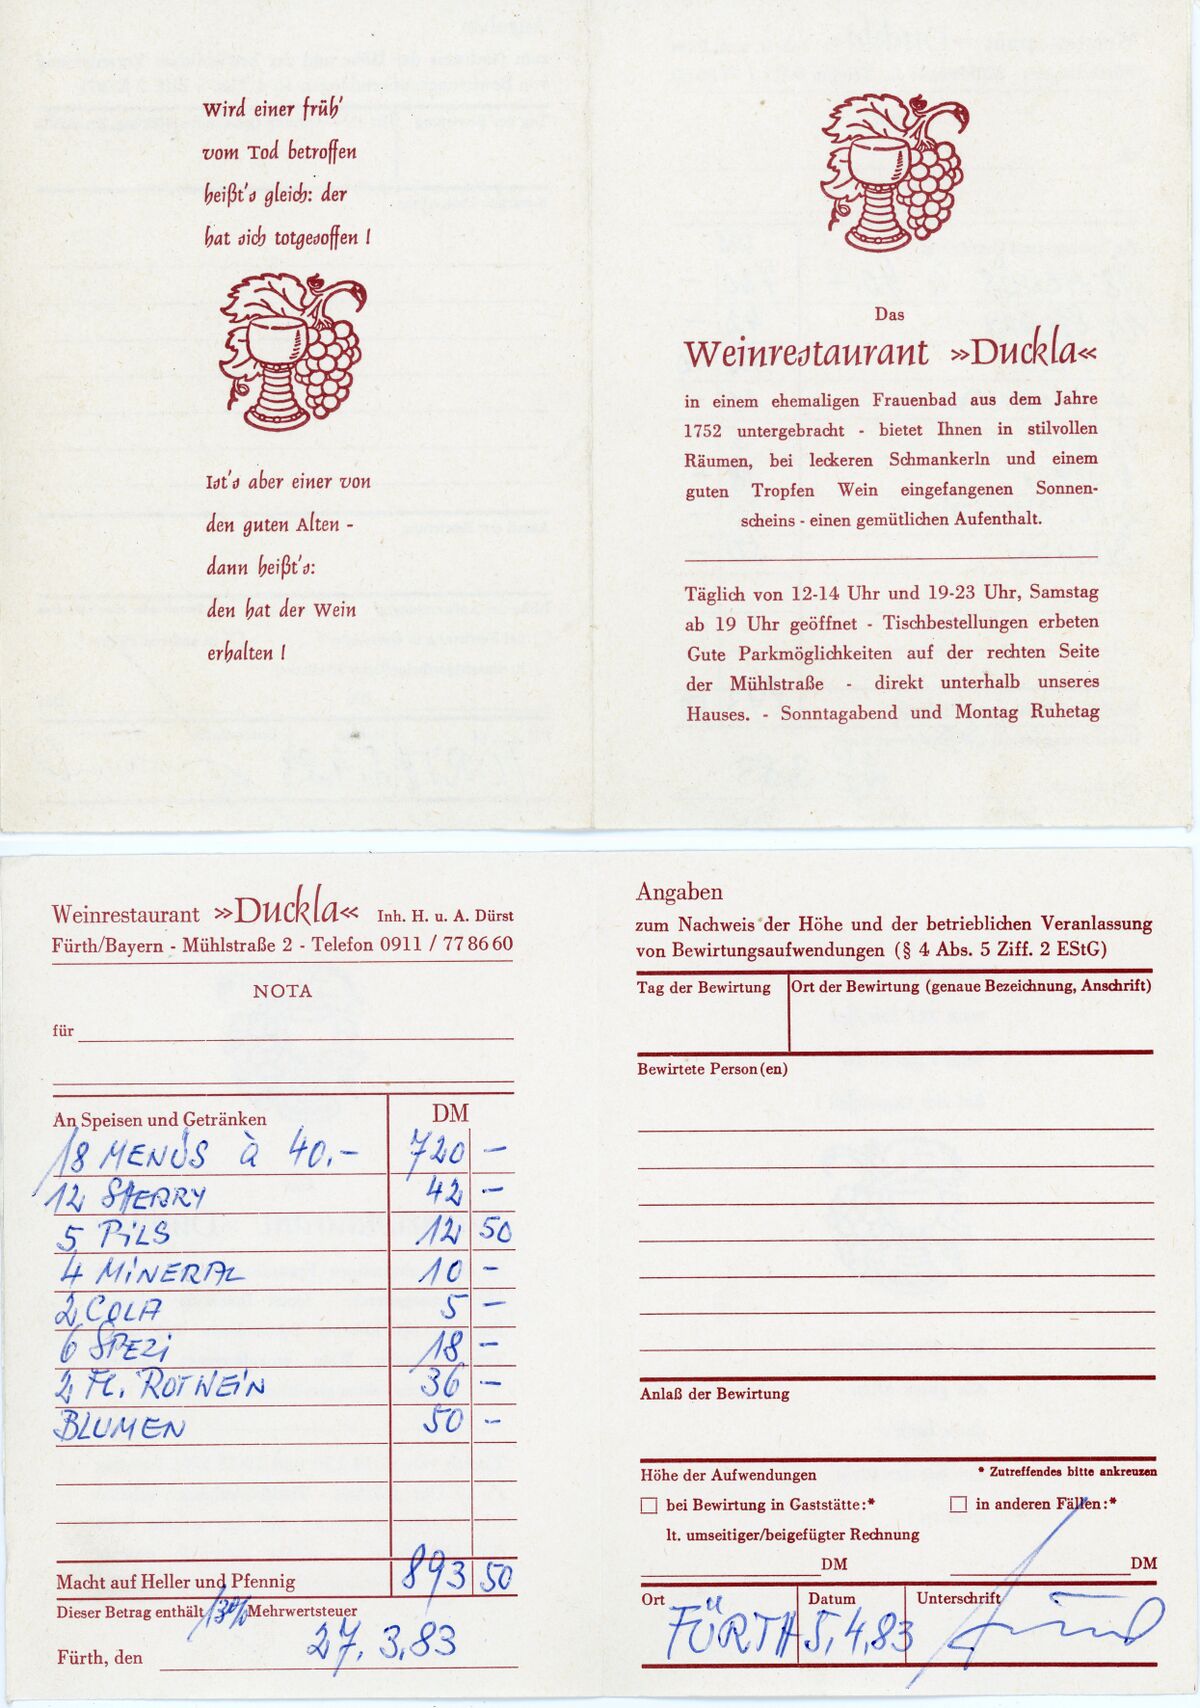 Wird einer früh'
vom Tod betroffen
heißt's gleich: der
hat sich totgesoffen !
Ist's aber einer von
den guten Alten -
dann heißt's:
den hat der Wein
erhalten !
Das
Weinrestaurant »Duckla«
in einem ehemaligen Frauenbad aus dem Jahre
1752 untergebracht - bietet Ihnen in stilvollen
Räumen, bei leckeren Schmankerln und einem
guten Tropfen Wein eingefangenen Sonnen-
scheins - einen gemütlichen Aufenthalt.
Täglich von 12-14 Uhr und 19-23 Uhr, Samstag
ab 19 Uhr geöffnet - Tischbestellungen erbeten
Gute Parkmöglichkeiten auf der rechten Seite
der Mühlstraße - direkt unterhalb unseres
Hauses. - Sonntagabend und Montag Ruhetag
Weinrestaurant »Duckla« Inh. H. u. A. Dürst
Fürth/Bayern - Mühlstraße 2 - Telefon 0911 / 77 86 60
NOTA
für
An Speisen und Getränken DM
18 MENÜS à 40.- 720 -
12 SHERRY 42 -
5 PILS 12 50
4 MINERAL 10 -
2 COLA 5 -
6 SPEZI 18 -
2 Fl. ROTWEIN 36 -
BLUMEN 50 -
Macht auf Heller und Pfennig 893 50
Dieser Betrag enthält 13% Mehrwertsteuer
Fürth, den 27. 3. 83
Angaben
zum Nachweis der Höhe und der betrieblichen Veranlassung
von Bewirtungsaufwendungen (§ 4 Abs. 5 Ziff. 2 EStG)
Tag der Bewirtung Ort der Bewirtung (genaue Bezeichnung, Anschrift)
Bewirtete Person(en)
Anlaß der Bewirtung
Höhe der Aufwendungen * Zutreffendes bitte ankreuzen
bei Bewirtung in Gaststätte:* in anderen Fällen:*
lt. umseitiger/beigefügter Rechnung
DM DM
Ort Datum Unterschrift
FÜRTH 5.4.83